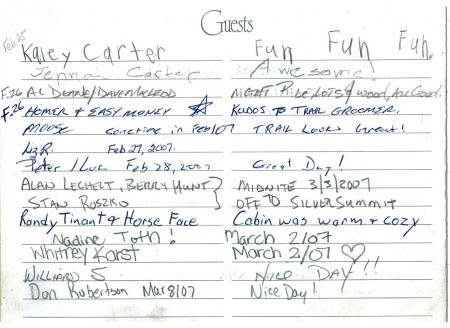 Guests
Feb 25
Kaley Carter Fun Fun Fun.
Jenna Carter Awesome!
F.26 AL DEANE/DAVE MACLEOD NIGHT RIDE LOTS of WOOD, ALL Good.
F.26 HOMER & EASY MONEY KUDOS TO TRAIL GROOMER.
MOOSE sometime in Feb/07 TRAIL Looks Great!
Liz R. Feb 27, 2007.
Peter / Luc Feb 28, 2007 Great Day!
ALAN LECHELT, BERRY HUNT } MIDNITE 3/3/2007
STAN ROSZKO } OFF TO SILVERSUMMIT
Randy Tinant & Horse Face Cabin was warm & cozy
Nadine Toth! March 2/07
Whitney Forst March 2/07
WILLIARD S NICE DAY!!
Don Robertson Mar 8/07 Nice Day!